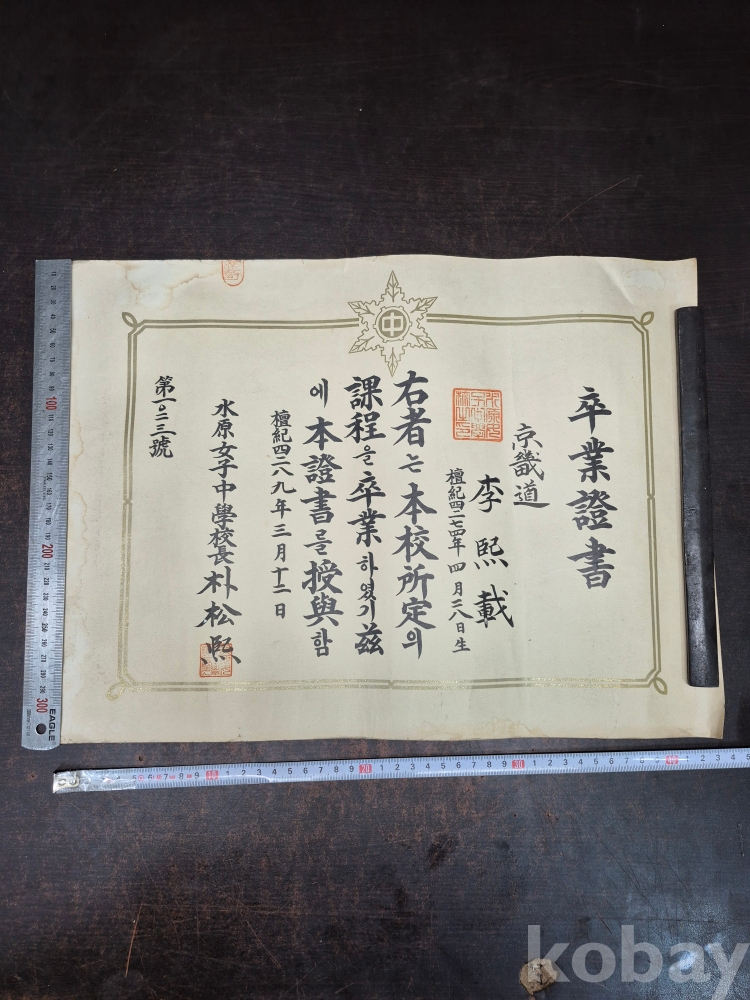 卒業證書
京畿道
李熙載
檀紀四二七四年四月二八日生
右者는本校所定의
課程을卒業하였기玆
에本證書를授與함
檀紀四二八九年三月十二日
水原女子中學校長朴松熙
第一〇二三號
中
EAGLE
100
200
300
10
20
30
40
kobay